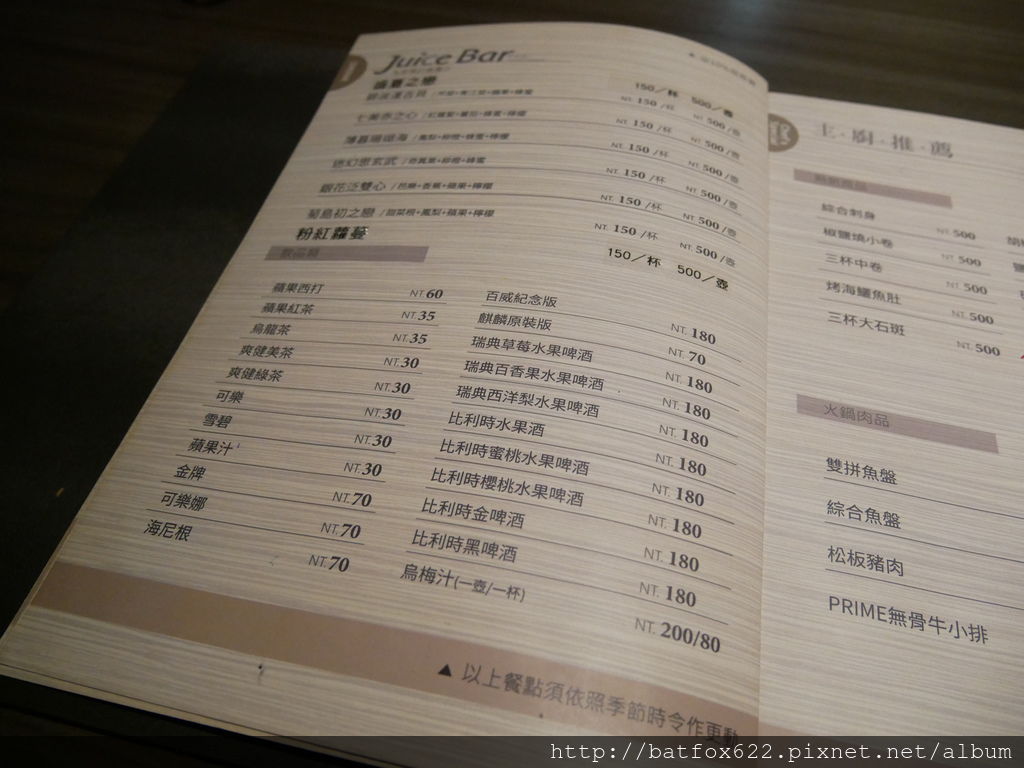 Juice Bar
盛夏之戀 150／杯 500／壺
NT. 150 /杯 NT. 500 /壺
七美赤之心 NT. 150 /杯 NT. 500 /壺
薄暮珊瑚海 /鳳梨+柳橙+蜂蜜+檸檬 NT. 150 /杯 NT. 500 /壺
迷幻思玄武 /奇異果+柳橙+蜂蜜 NT. 150 /杯 NT. 500 /壺
銀花泛雙心 /芭樂+香蕉+蘋果+檸檬 NT. 150 /杯 NT. 500 /壺
菊島初之戀 /甜菜根+鳳梨+蘋果+檸檬 NT. 150 /杯 NT. 500 /壺
粉紅蘿蔓 150／杯 500／壺
飲品類
蘋果西打 NT.60
蘋果紅茶 NT.35
烏龍茶 NT.35
爽健美茶 NT.30
爽健綠茶 NT.30
可樂 NT.30
雪碧 NT.30
蘋果汁 NT.30
金牌 NT.70
可樂娜 NT.70
海尼根 NT.70
百威紀念版 NT. 180
麒麟原裝版 NT. 70
瑞典草莓水果啤酒 NT. 180
瑞典百香果水果啤酒 NT. 180
瑞典西洋梨水果啤酒 NT. 180
比利時水果酒 NT. 180
比利時蜜桃水果啤酒 NT. 180
比利時櫻桃水果啤酒 NT. 180
比利時金啤酒 NT. 180
比利時黑啤酒 NT. 180
烏梅汁(一壺/一杯) NT. 200/80
▲ 以上餐點須依照季節時令作更動
主·廚·推·薦
綜合刺身 NT. 500
椒鹽燒小卷 NT. 500
三杯中卷 NT. 500
烤海鱺魚肚 NT. 500
三杯大石斑 NT. 500
火鍋肉品
雙拼魚盤
綜合魚盤
松板豬肉
PRIME無骨牛小排
http://batfox622.pixnet.net/album